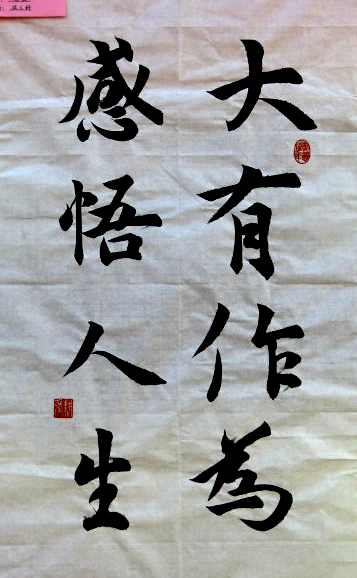 大有作為
感悟人生